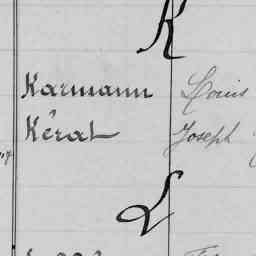 K
Karmann Louis
Kérat Joseph
L